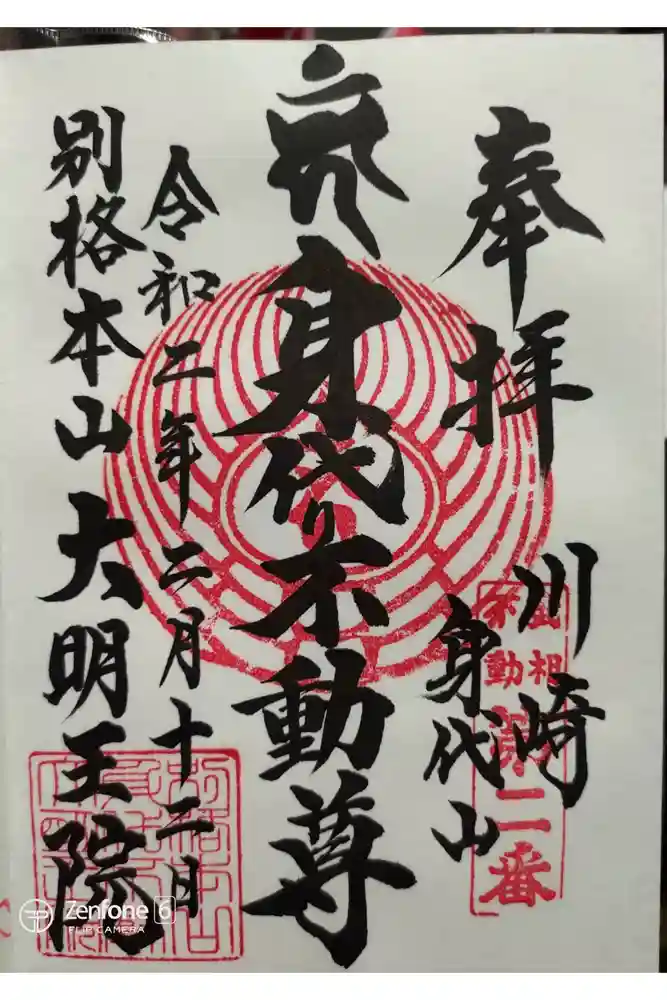 奉拝
川崎
身代山
武相
不動
第二番
身代り不動尊
令和二年二月十二日
別格本山大明王院
Zenfone 6
FLIP CAMERA